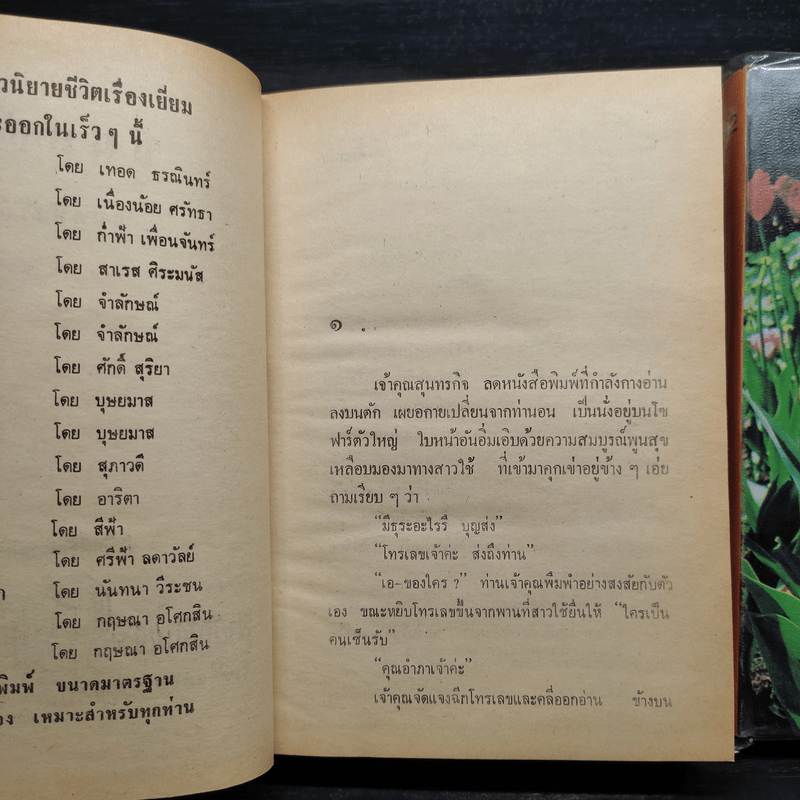 นิยายชีวิตเรื่องเยี่ยม
ออกในเร็ว ๆ นี้
โดย เทอด ธรณินทร์
โดย เนื่องน้อย ศรัทธา
โดย ก่ำฟ้า เพื่อนจันทร์
โดย สาเรส ศิระมนัส
โดย จำลักษณ์
โดย จำลักษณ์
โดย ศักดิ์ สุริยา
โดย บุษยมาส
โดย บุษยมาส
โดย สุภาวดี
โดย อาริตา
โดย สีฟ้า
โดย ศรีฟ้า ลดาวัลย์
โดย นันทนา วีระชน
โดย กฤษณา อโศกสิน
โดย กฤษณา อโศกสิน
พิมพ์ ขนาดมาตรฐาน
เหมาะสำหรับทุกท่าน
๑
เจ้าคุณสุนทรกิจ ลดหนังสือพิมพ์ที่กำลังกางอ่าน
ลงบนตัก เผยอกายเปลี่ยนจากท่านอน เป็นนั่งอยู่บนโซ
ฟาร์ตัวใหญ่ ใบหน้าอันอิ่มเอิบด้วยความสมบูรณ์พูนสุข
เหลือบมองมาทางสาวใช้ ที่เข้ามาคุกเข่าอยู่ข้าง ๆ เอ่ย
ถามเรียบ ๆ ว่า
“มีธุระอะไรรึ บุญส่ง”
“โทรเลขเจ้าค่ะ ส่งถึงท่าน”
“เอ-ของใคร ?” ท่านเจ้าคุณพึมพำอย่างสงสัยกับตัว
เอง ขณะหยิบโทรเลขขึ้นจากพานที่สาวใช้ยื่นให้ “ใครเป็น
คนเซ็นรับ”
“คุณอำภาเจ้าค่ะ”
เจ้าคุณจัดแจงฉีกโทรเลขและคลี่ออกอ่าน ข้างบน
2